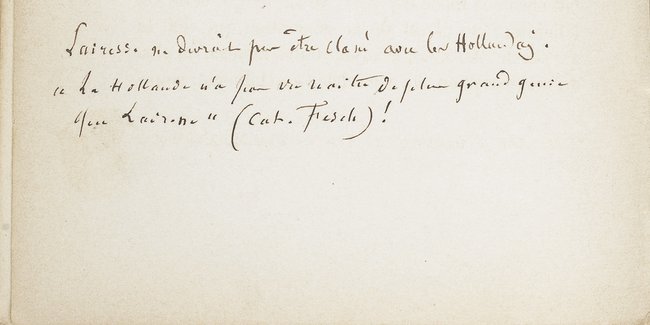 Lairesse ne devrait pas être classé avec les Hollandais.
« La Hollande n'a pas vu naître de plus grand génie
que Lairesse » (Cat. Fesch) !